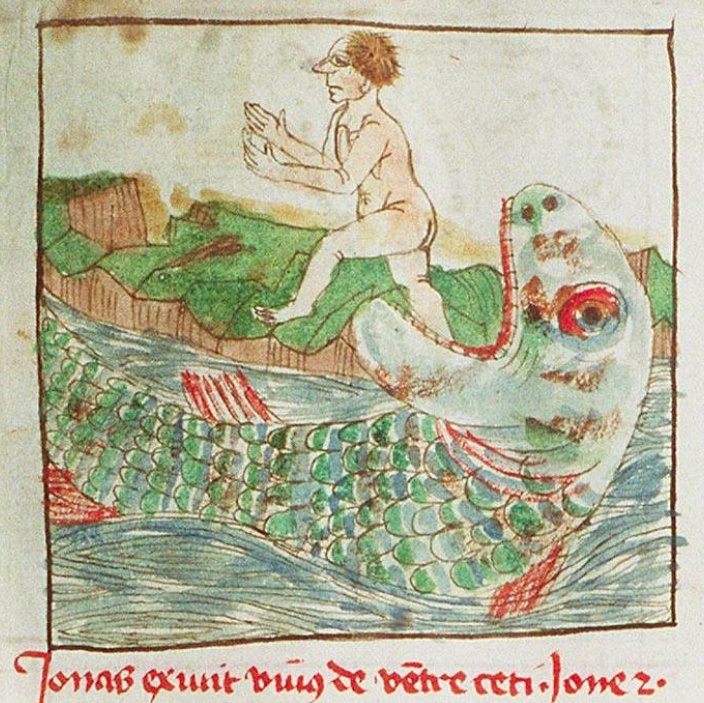 Jonas exiuit viuꝰ de vētre ceti . Jone 2 .